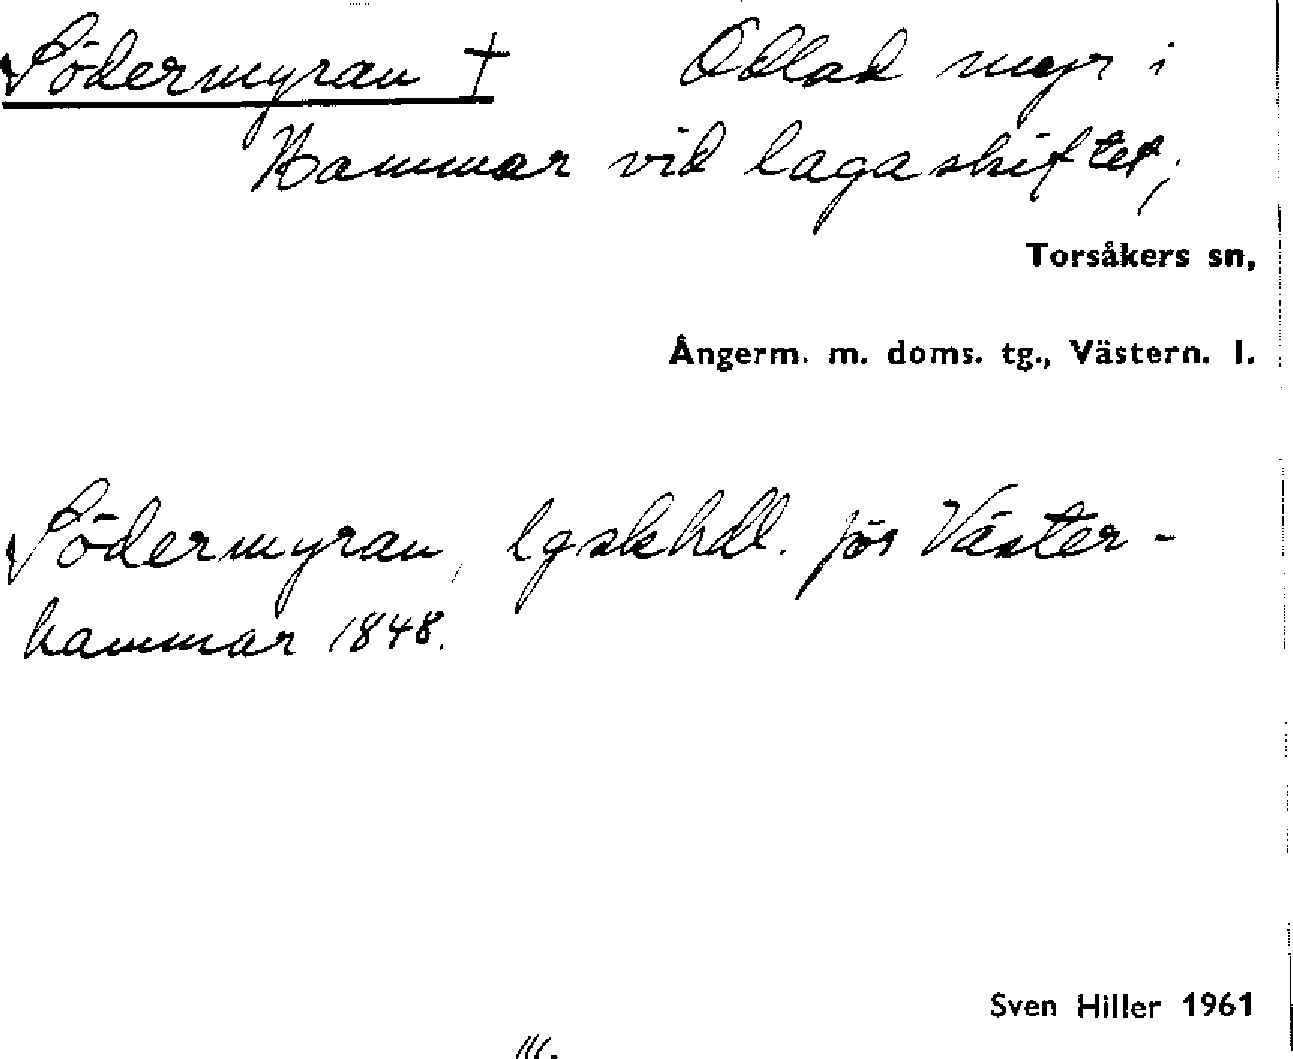 Södermyran † Odlad myr i
Hammar vid laga skiftet;
Torsåkers sn,
Ångerm. m. doms. tg., Västern. l.
Södermyran, lgskhdl. för Väster-
hammar 1848.
Sven Hiller 1961